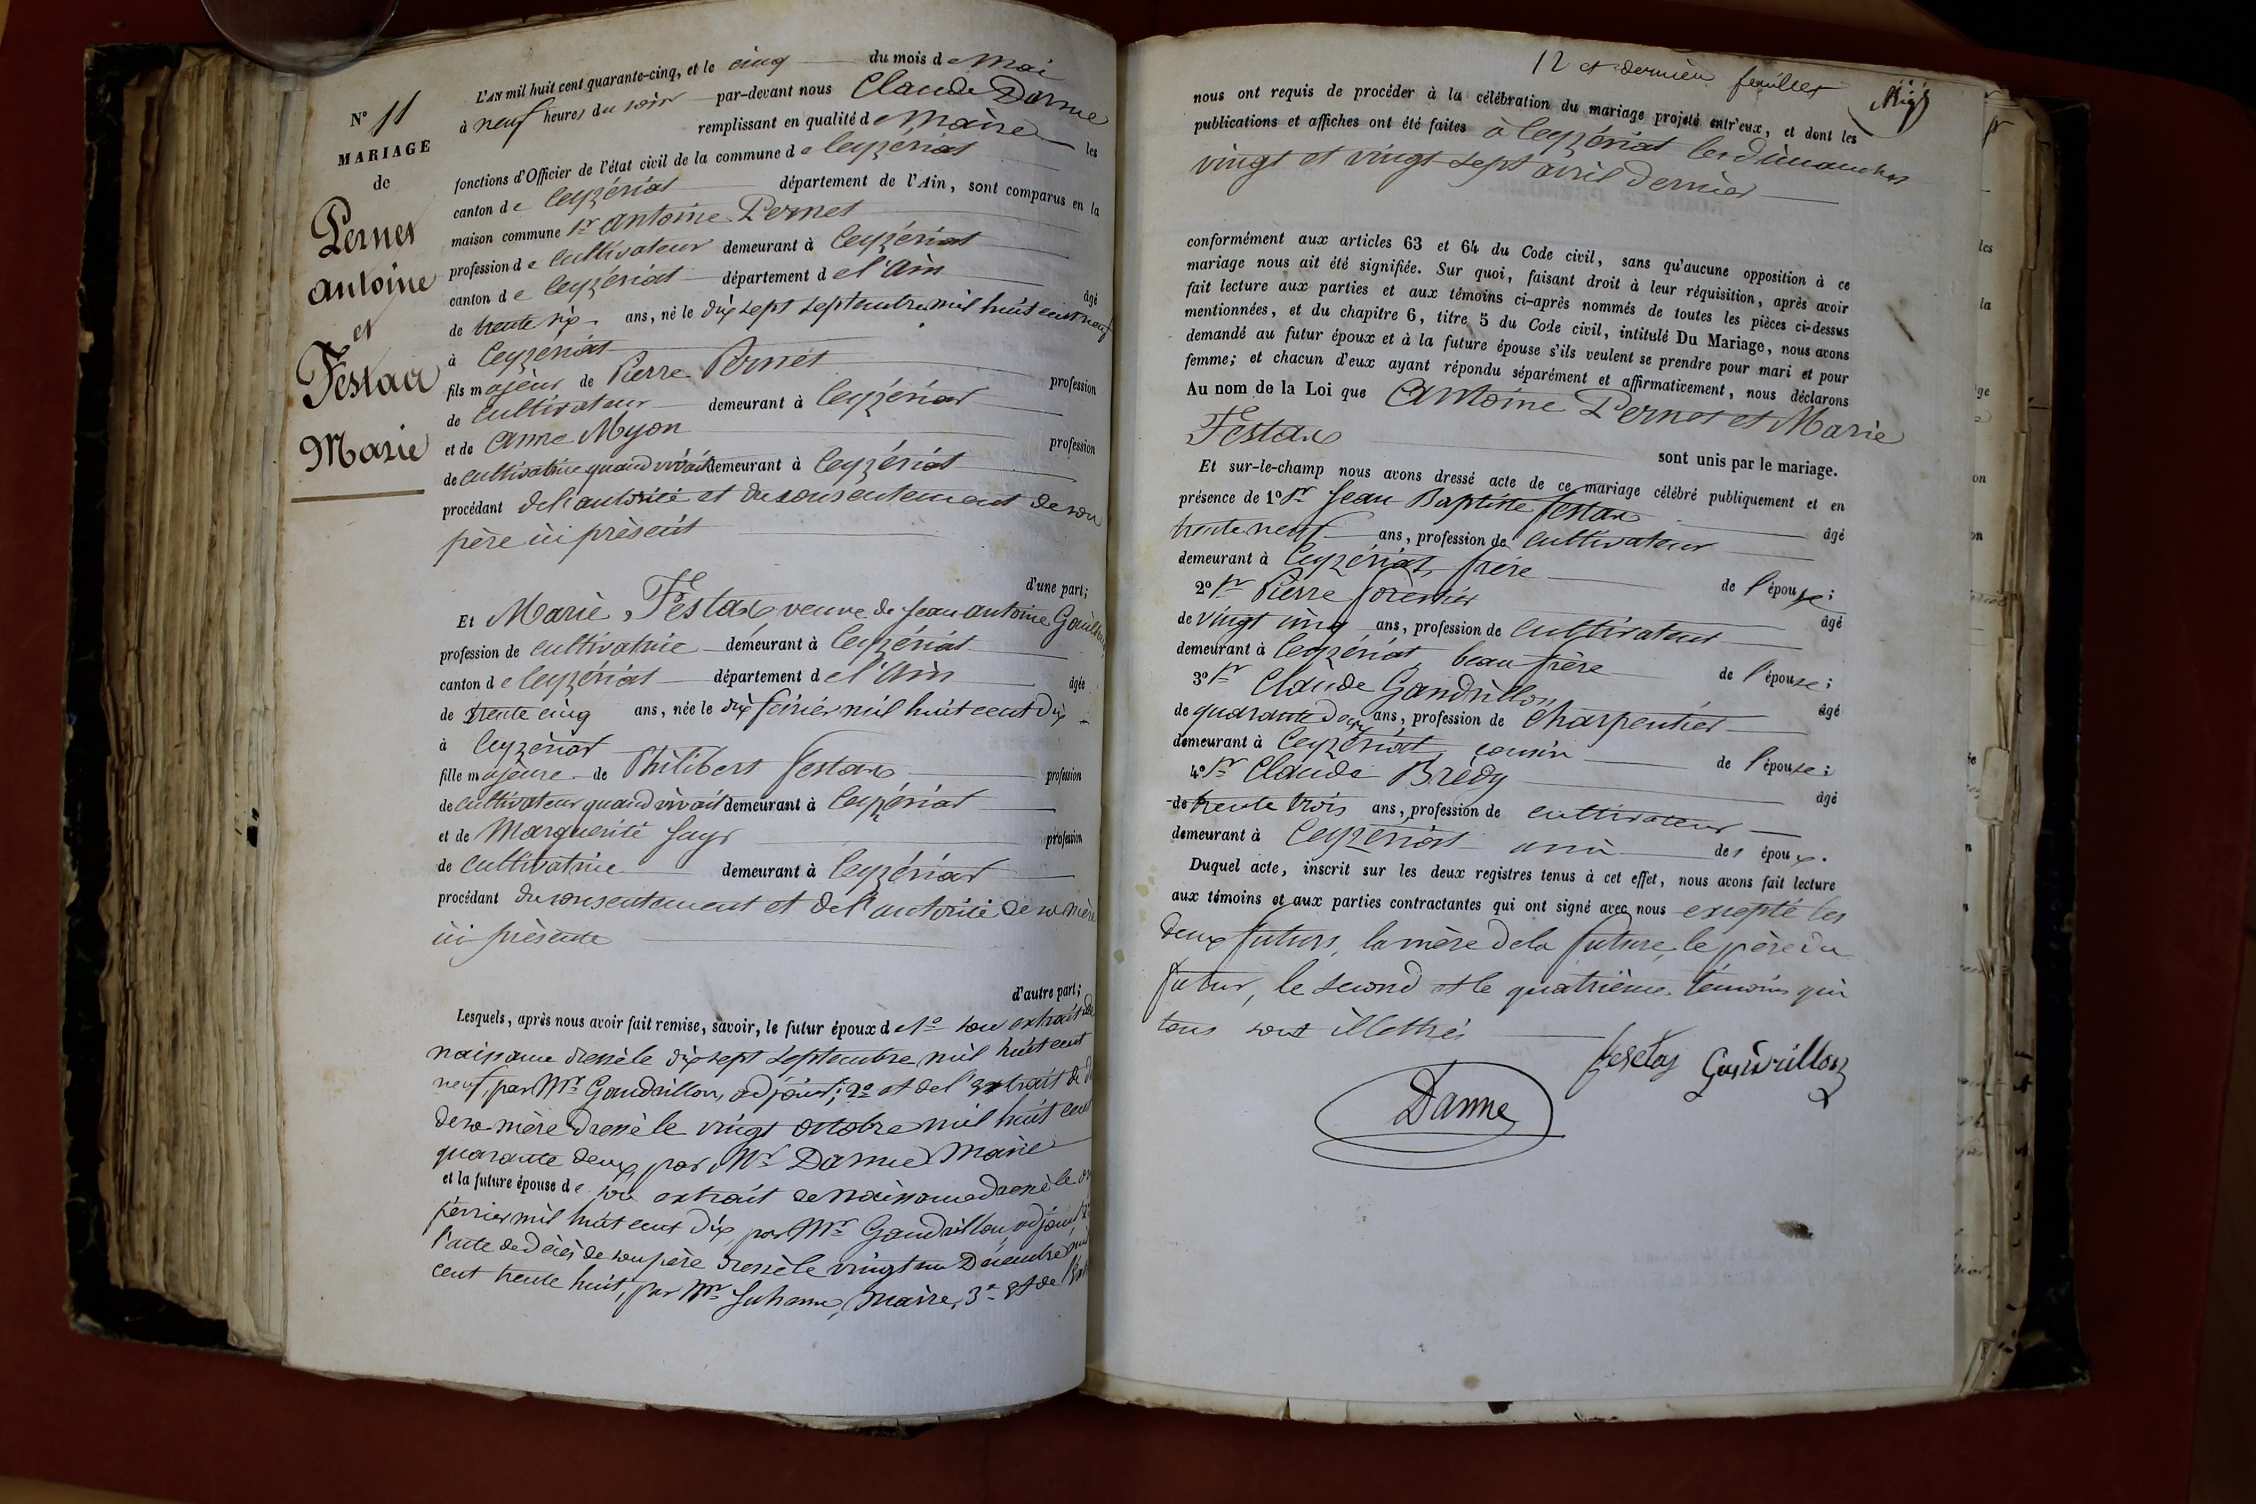 N° 11
MARIAGE
de
Pernet
Antoine
et
Festaz
Marie
L'AN mil huit cent quarante-cinq, et le cinq du mois de Mai
à neuf heures du soir par-devant nous Claude Danne
remplissant en qualité de Maire les
fonctions d'Officier de l'état civil de la commune de Ceyzériat
canton de Ceyzériat département de l'Ain, sont comparus en la
maison commune Sr Antoine Pernet
profession de cultivateur demeurant à Ceyzériat
canton de Ceyzériat département de l'Ain âgé
de trente six ans, né le dix sept septembre mil huit cent neuf
à Ceyzériat
fils majeur de Pierre Pernet profession
de cultivateur demeurant à Ceyzériat
et de Anne Myon profession
de cultivatrice quand vivait demeurant à Ceyzériat
procédant de l'autorité et du consentement de son
père ici présent
d'une part;
Et Marie Festaz veuve de Jean Antoine
profession de cultivatrice demeurant à Ceyzériat
canton de Ceyzériat département de l'Ain âgée
de trente cinq ans, née le dix février mil huit cent dix
à Ceyzériat
fille majeure de Philibert Festaz profession
de cultivateur quand vivait demeurant à Ceyzériat
et de Marguerite profession
de cultivatrice demeurant à Ceyzériat
procédant du consentement et de l'autorité de sa mère
ici présente
d'autre part;
Lesquels, après nous avoir fait remise, savoir, le futur époux de 1° son extrait de
naissance dressé le dix sept septembre mil huit cent
neuf, par Mr Gandrillon, adjoint; 2° et de l'extrait de
de sa mère dressé le vingt octobre mil huit cent
quarante deux par Mr Danne Maire
et la future épouse de son extrait de naissance dressé le
février mil huit cent dix par Mr Gandrillon adjoint 2°
l'acte de décès de son père dressé le vingt un Décembre mil
cent trente huit, par Mr Maire, 3° et de
12 et dernier feuillet
nous ont requis de procéder à la célébration du mariage projeté entr'eux, et dont les
publications et affiches ont été faites à Ceyzériat les dimanches
vingt et vingt sept avril dernier
conformément aux articles 63 et 64 du Code civil, sans qu'aucune opposition à ce
mariage nous ait été signifiée. Sur quoi, faisant droit à leur réquisition, après avoir
fait lecture aux parties et aux témoins ci-après nommés de toutes les pièces ci-dessus
mentionnées, et du chapitre 6, titre 5 du Code civil, intitulé Du Mariage, nous avons
demandé au futur époux et à la future épouse s'ils veulent se prendre pour mari et pour
femme; et chacun d'eux ayant répondu séparément et affirmativement, nous déclarons
Au nom de la Loi que Antoine Pernet et Marie
Festaz
sont unis par le mariage.
Et sur-le-champ nous avons dressé acte de ce mariage célébré publiquement et en
présence de 1° Sr Jean Baptiste Festaz âgé
trente neuf ans, profession de cultivateur
demeurant à Ceyzériat, frère de l'épouse;
2° Sr Pierre Forestier âgé
de vingt cinq ans, profession de cultivateur
demeurant à Ceyzériat, beau frère de l'épouse;
3° Sr Claude Gandrillon âgé
de quarante deux ans, profession de charpentier
demeurant à Ceyzériat, cousin de l'épouse;
4° Sr Claude Brédy âgé
de trente trois ans, profession de cultivateur
demeurant à Ceyzériat ami des époux.
Duquel acte, inscrit sur les deux registres tenus à cet effet, nous avons fait lecture
aux témoins et aux parties contractantes qui ont signé avec nous excepté les
deux futurs, la mère de la future, le père du
futur, le second et le quatrième témoins qui
tous sont illettrés
festaz Gandrillon
Danne